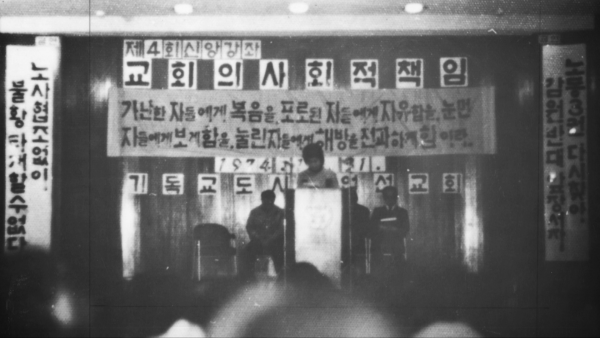 제4회신앙강좌
교회의사회적책임
가난한 자들에게 복음을, 포로된 자들에게 자유함을, 눈먼
자들에게 보게함을, 눌린자들에게 해방을 전파하게 힘이란.
1974
기독교도시산업선교회
노사협조없이
불황타개할수없다
노동3권